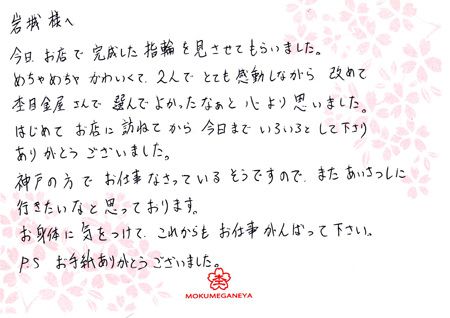 岩城 様へ
今日、お店で 完成した 指輪を見させてもらいました。
めちゃめちゃ かわいくて、2人で とても感動しながら 改めて
杢目金屋 さんで 選んで よかったなぁと 心より 思いました。
はじめて お店に 訪ねて から 今日まで いろいろと して 下さり
ありがとうございました。
神戸の方で お仕事 なさっている そうですので、また あいさつしに
行きたいな と 思っております。
お身体に 気をつけて、これからも お仕事 がんばって 下さい。
PS お手紙ありがとうございました。
MOKUMEGANEYA